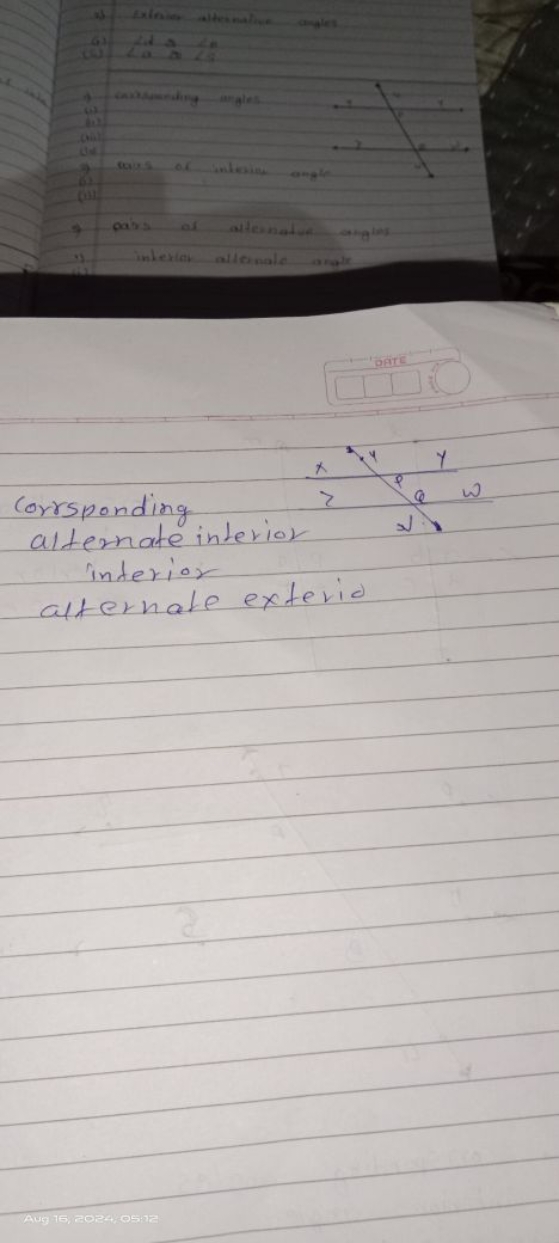 angles
corrsponding angles
(i)
(ii)
(iii)
(iv)
pairs of interior angle
(i)
(ii)
pairs of alternative angles
interior alternate angle
DATE
X Y
P
Z Q W
corrsponding
alternate interior
interior
alternate exterio
Aug 16, 2024, 05:12